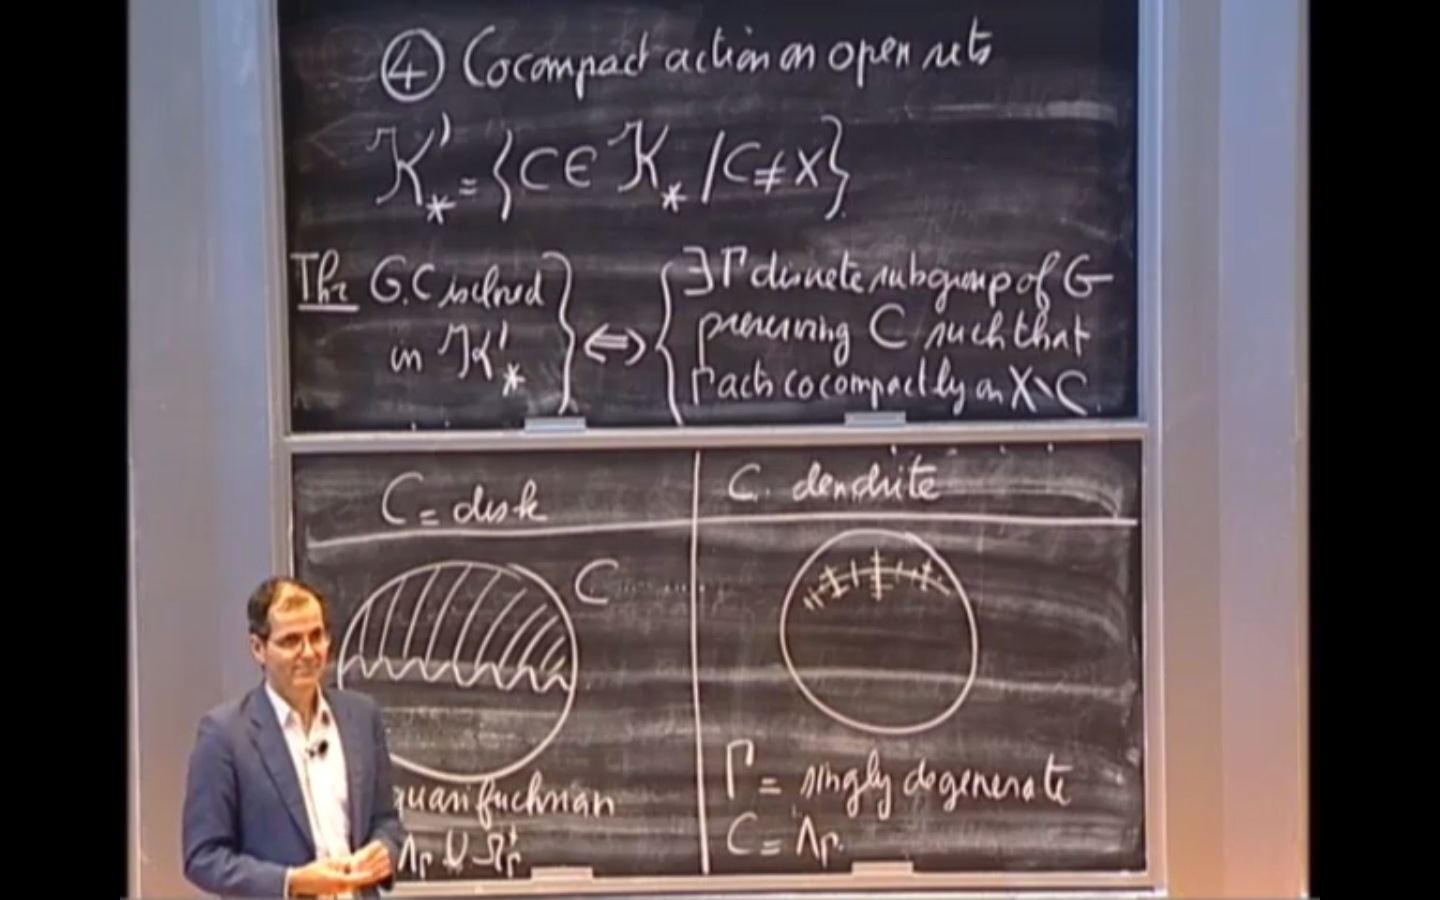 ④ Cocompact action on open sets
𝒦'_* = {C ∈ 𝒦_* / C ≠ X}
Th: G.C is closed in 𝒦'_* } ⟺ { ∃Γ discrete subgroup of G
preserving C such that
Γ acts cocompactly on X∖C.
C = disk
C
quasifuchsian
Λ_Γ ∪ Ω⁺_Γ
C. dendrite
Γ = singly degenerate
C = Λ_Γ.